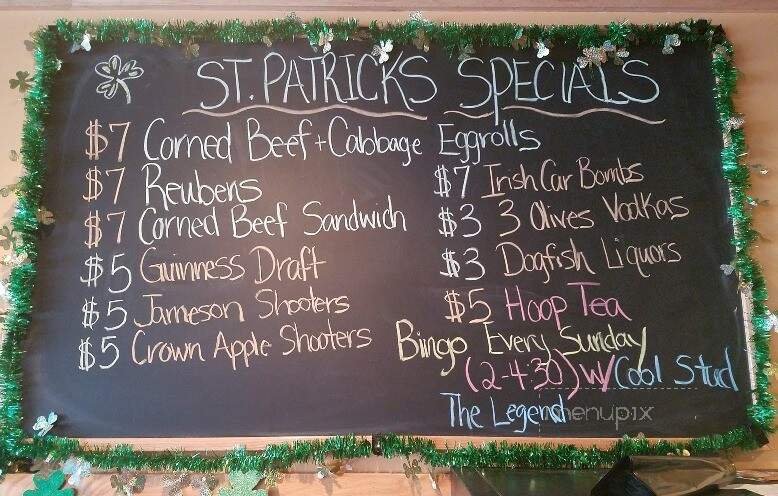 ST. PATRICKS SPECIALS
$7 Corned Beef + Cabbage Eggrolls
$7 Reubens
$7 Corned Beef Sandwich
$5 Guinness Draft
$5 Jameson Shooters
$5 Crown Apple Shooters
$7 Irish Car Bombs
$3 3 Olives Vodkas
$3 Dogfish Liquors
$5 Hoop Tea
Bingo Every Sunday
(2-4:30) w/ Cool Stud
The Legend
menupix